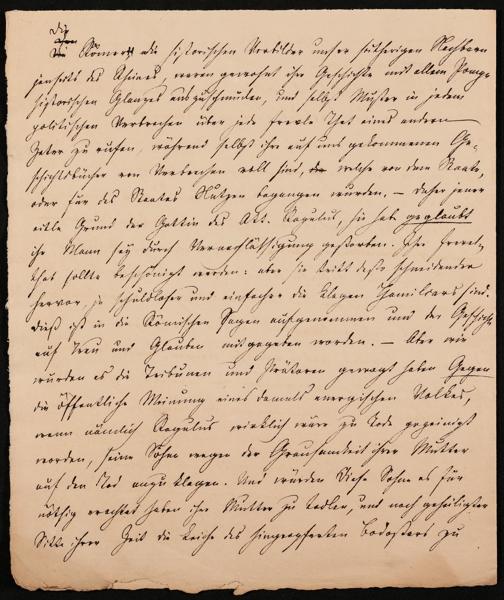 Die
Römer, die historischen Vorbilder unsrer seitherigen Nachbarn
jenseits des Rheines, waren gewohnt ihre Geschichte mit allem Pomp
historischen Glanzes auszuschmücken, und selbst Muster in jedem
politischen Verbrechen über jede freie That eines andern
Zeter zu rufen, während selbst ihre auf uns gekommenen Ge-
schichtsbücher von Verbrechen voll sind, welche von dem Staate,
oder für des Staates Nutzen begangen wurden. — Daher jener
eitle Grund der Gattin des Att. Regulus, sie hab geglaubt
ihr Mann sey durch Vernachlässigung gestorben. Ihre Frevel-
that sollte beschönigt werden: aber sie tritt desto schneidender
hervor, je schuldloser und einfacher die Klagen Hamilcars sind.
Dieß ist in die Römischen Sagen aufgenommen und der Geschichte
auf Treu und Glauben mitgegeben worden. — Aber wie
würden es die Tribunen und Prätoren gewagt haben Gegen
die Öffentliche Meinung eines damals energischen Volkes,
wenn nämlich Regulus wirklich wäre zu Tode gepeinigt
worden, seine Söhne wegen der Grausamkeit ihrer Mutter
auf den Tod anzuklagen. Und würden diese Söhne es für
nöthig erachtet haben ihre Mutter zu tadeln, und nach geheiligter
Sitte ihrer Zeit die Leiche des hingeopferten Bodostars zu